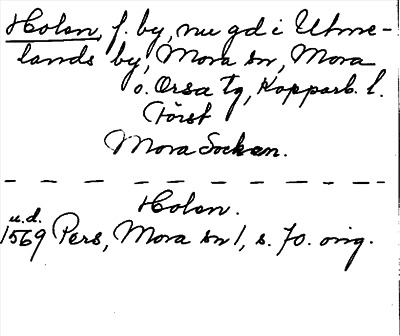 Holen, f. by, nu gd i Utme-
lands by, Mora sn, Mora
o. Orsa tg, Kopparb. l.
Först
Mora Socken.
Holen.
u.d.
1569 Pers, Mora sn 1, s. 70. orig.